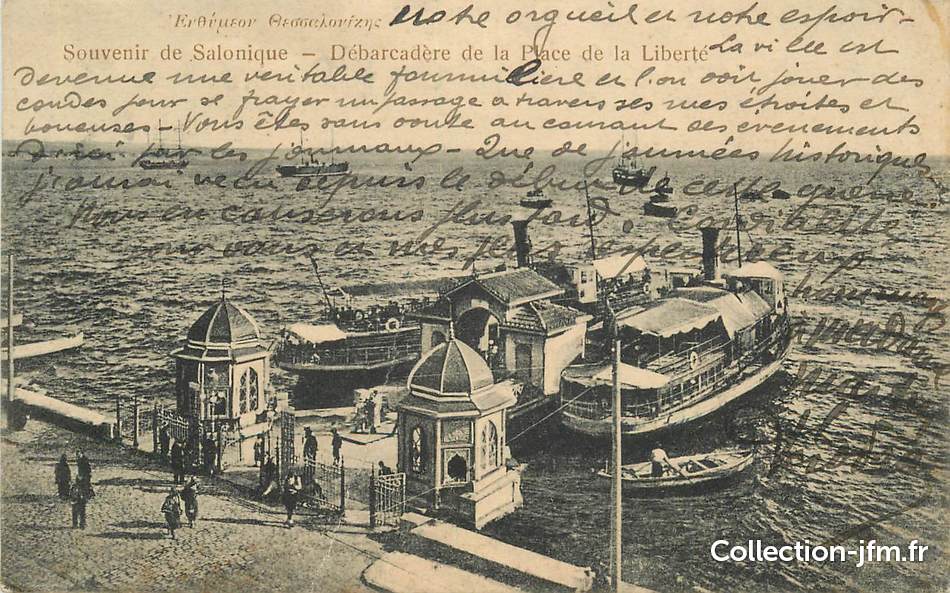 Ἐνθύμεον Θεσσαλονίκης
notre orgueil et notre espoir –
Souvenir de Salonique – Débarcadère de la Place de la Liberté
La ville est
devenue une veritable fourmilière et l'on doit jouer des
coudes pour se frayer un passage a travers ses rues étroites et
boueuses – Vous êtes sans doute au courant des évenements
d'ici par les journaux – Que de journées historiques
j'aurai vécu depuis le début de cette guerre!
Nous en causerons plus tard,
pour vous et mes plus
hommages
Collection-jfm.fr